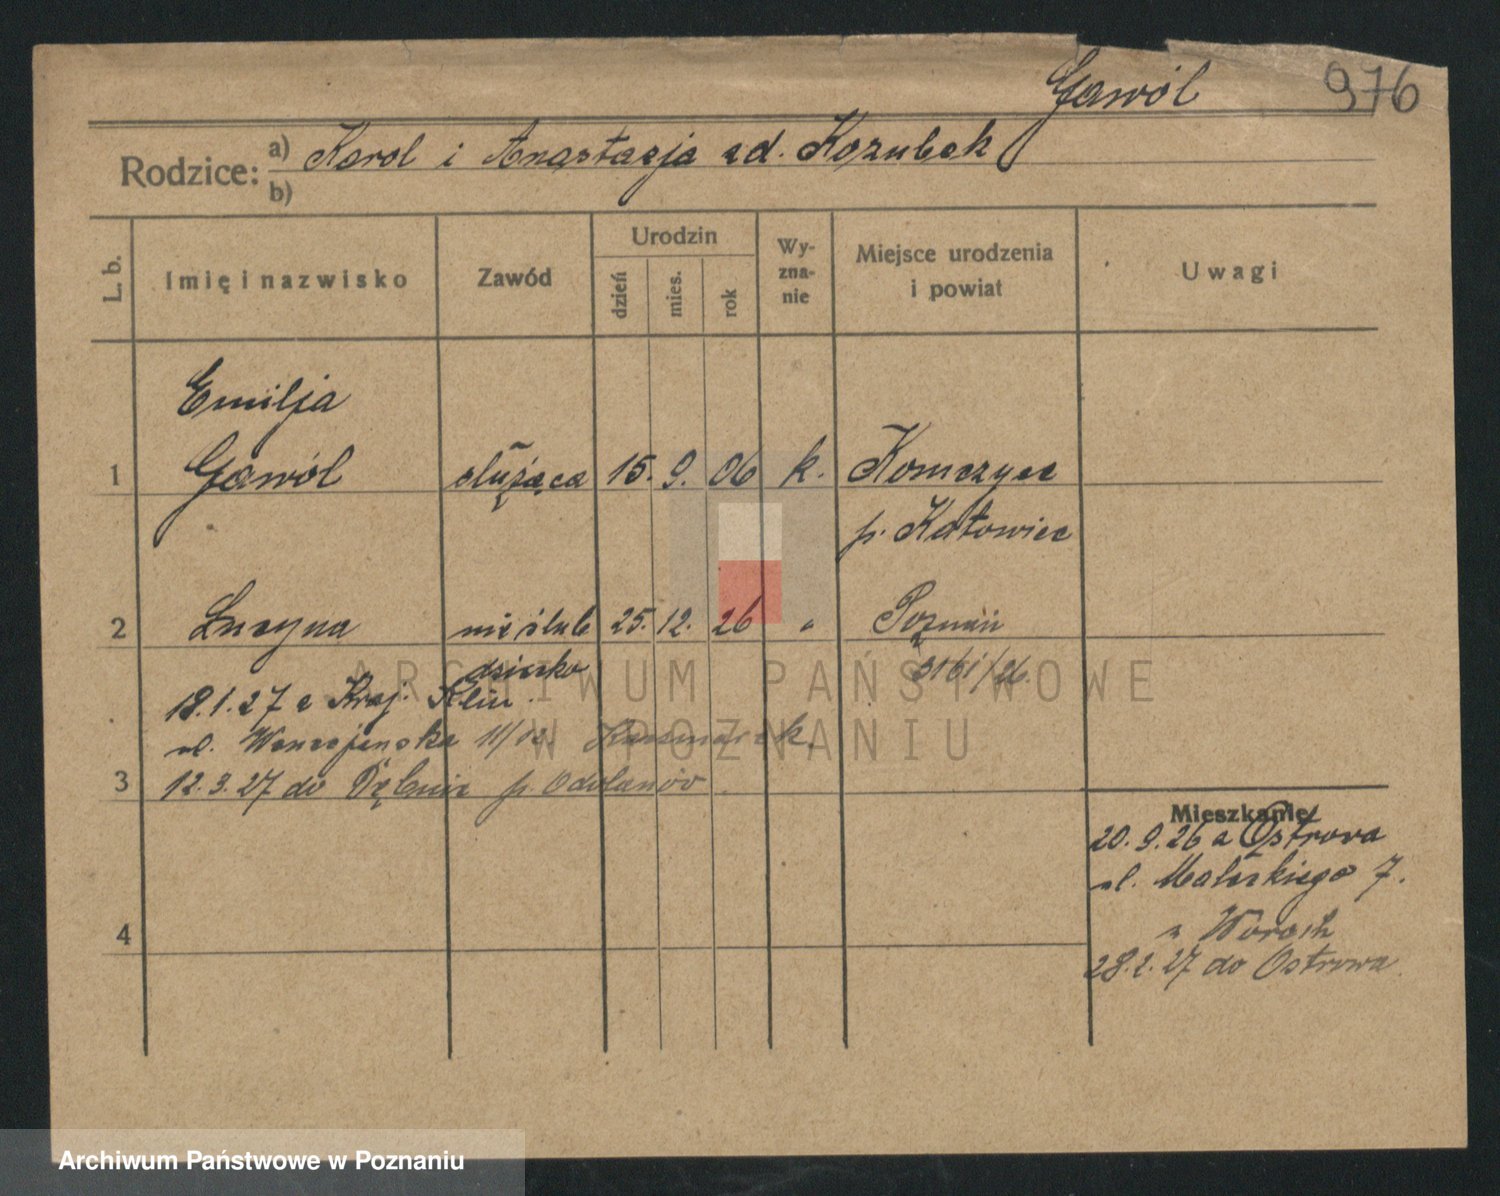 Gawól 976
Rodzice: a) Karol i Anastazja zd. Kozubek
b)
L. b. Imię i nazwisko Zawód Urodzin dzień mies. rok Wyznanie Miejsce urodzenia i powiat Uwagi
Emilja
1 Gawól służąca 15. 9. 06 k.
p. Katowice
2 Lucyna nieślub 25. 12. 26 " Poznań
dziecko 3161/26.
18.1.27 z Kraj. Klin.
ul.
3 12.3.27 do p. Odolanów
Mieszkanie
20.9.26 z Ostrowa
ul. Małeckiego 7.
4
28.2.27 do Ostrowa
ARCHIWUM PAŃSTWOWE
W POZNANIU
Archiwum Państwowe w Poznaniu